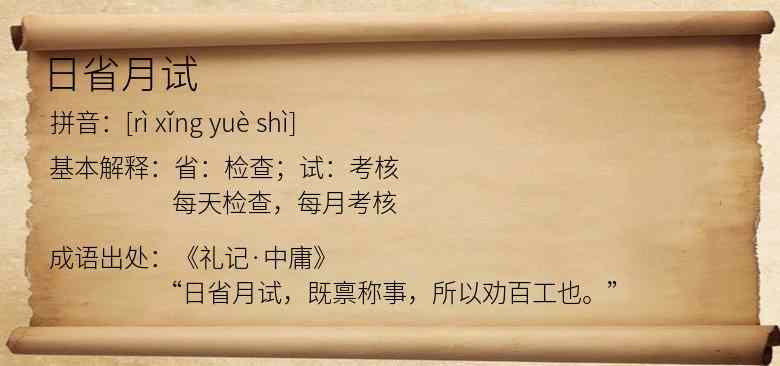 日省月试
拼音：[rì xǐng yuè shì]
基本解释：省：检查；试：考核
每天检查，每月考核
成语出处：《礼记·中庸》
“日省月试，既禀称事，所以劝百工也。”